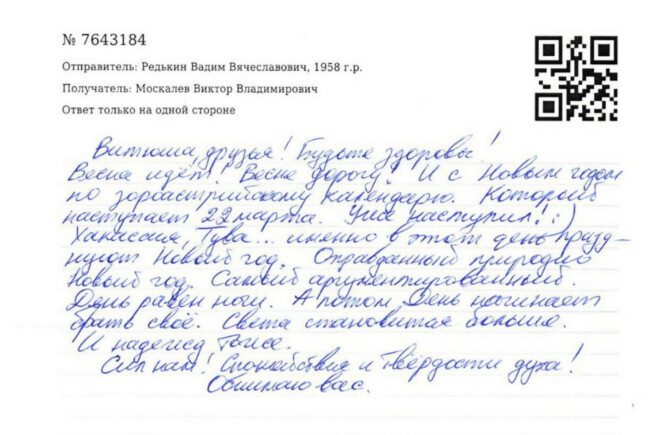 № 7643184
Отправитель: Редькин Вадим Вячеславович, 1958 г.р.
Получатель: Москалев Виктор Владимирович
Ответ только на одной стороне
Витюша, друзья! Будьте здоровы!
Весна идёт! Весне дорогу! И с Новым годом
по зороастрийскому календарю. Который
наступает 22 марта. Уже наступил! :)
Хакассия, Тува... именно в этот день празд-
нуют Новый год. Оправданный природно
Новый год. Самый аргументированный.
День равен ночи. А потом День начинает
брать своё. Света становится больше.
И надежд тоже.
Сил нам! Спокойствия и Твёрдости духа!
Обнимаю вас.